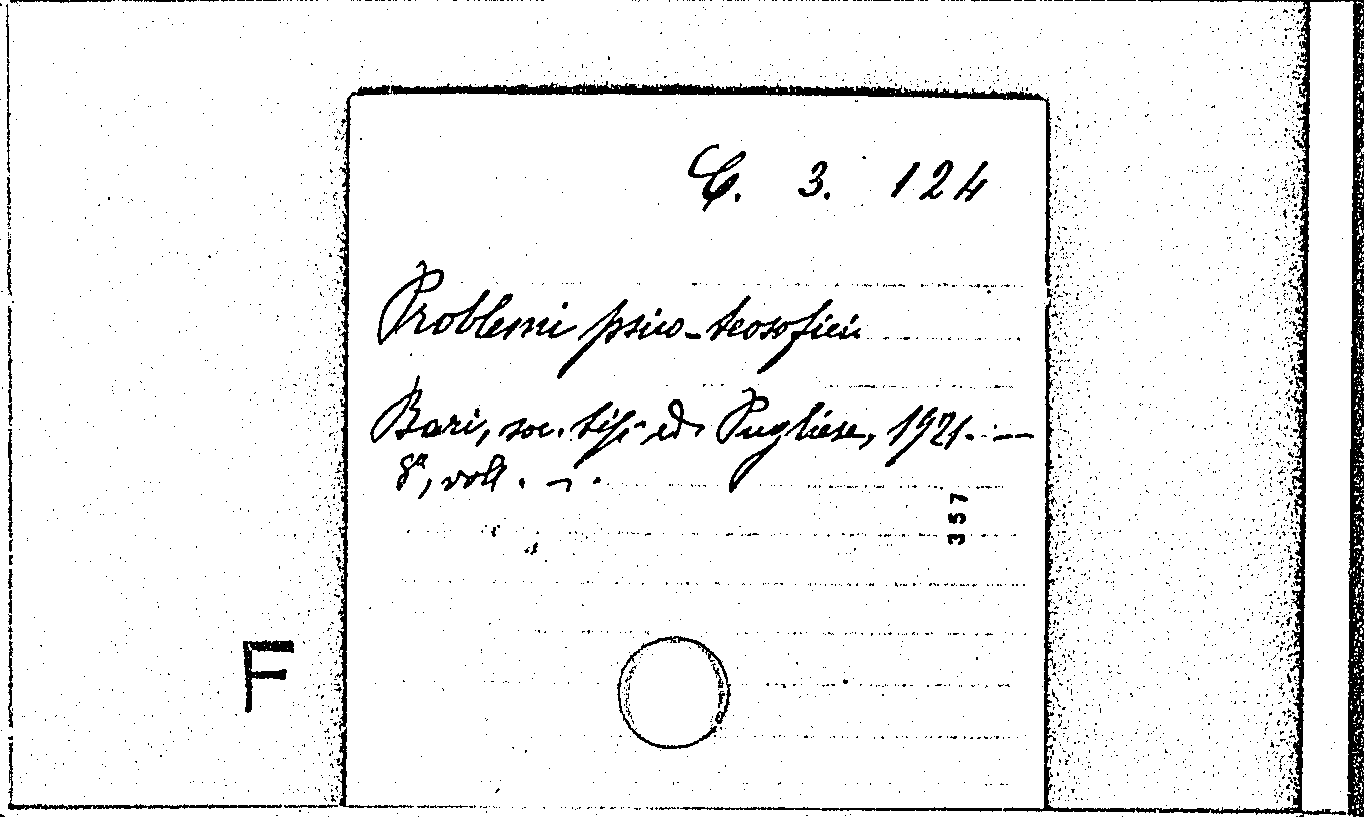 C. 3. 124
Problemi psico-teosofici
Bari, soc. tip. ed. Pugliese, 1921. —
8°, voll. — .
357
F